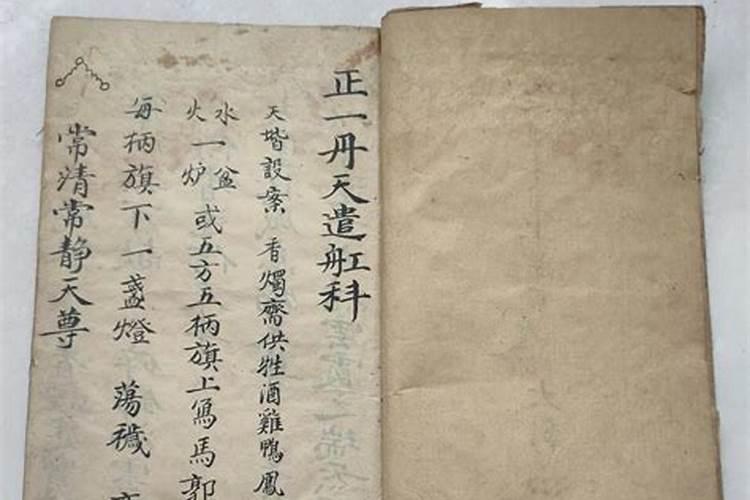 正一丹天遣舡科
天堦設案 香燭齋供牲酒雞鴨鳳
水一盆
火一炉
或五方五柄旗上寫馬郭
每柄旗下一盞燈 蕩穢
常清常靜天尊